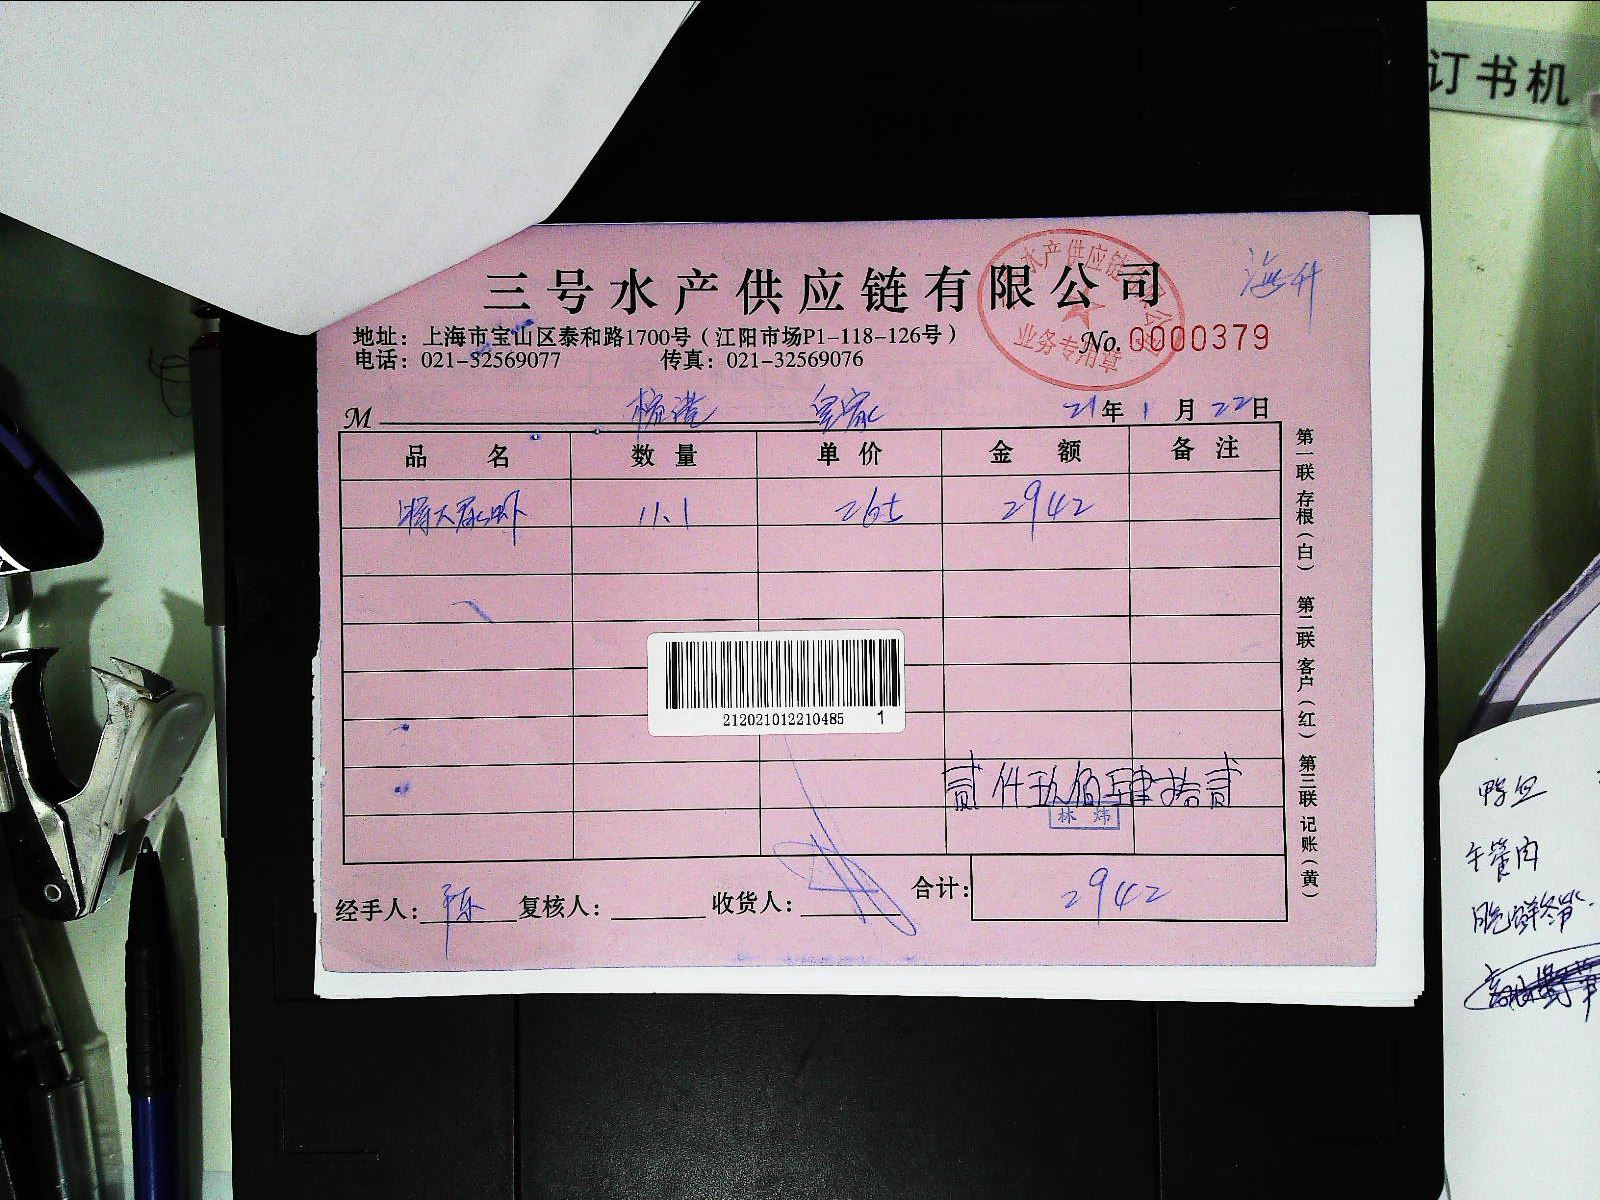 订书机
三号水产供应链有限公司
水产供应链有限公
业务专用章
地址：上海市宝山区泰和路1700号（江阳市场P1-118-126号）
电话：021-32569077 传真：021-32569076
No.0000379
M 皇家 21年1月22日
品名 数量 单价 金额 备注
11.1 265 2942
212021012210485 1
贰仟玖佰肆拾贰
林炜
经手人：陈 复核人： 收货人： 合计：2942
第一联 存根（白） 第二联 客户（红） 第三联 记账（黄）
午餐肉